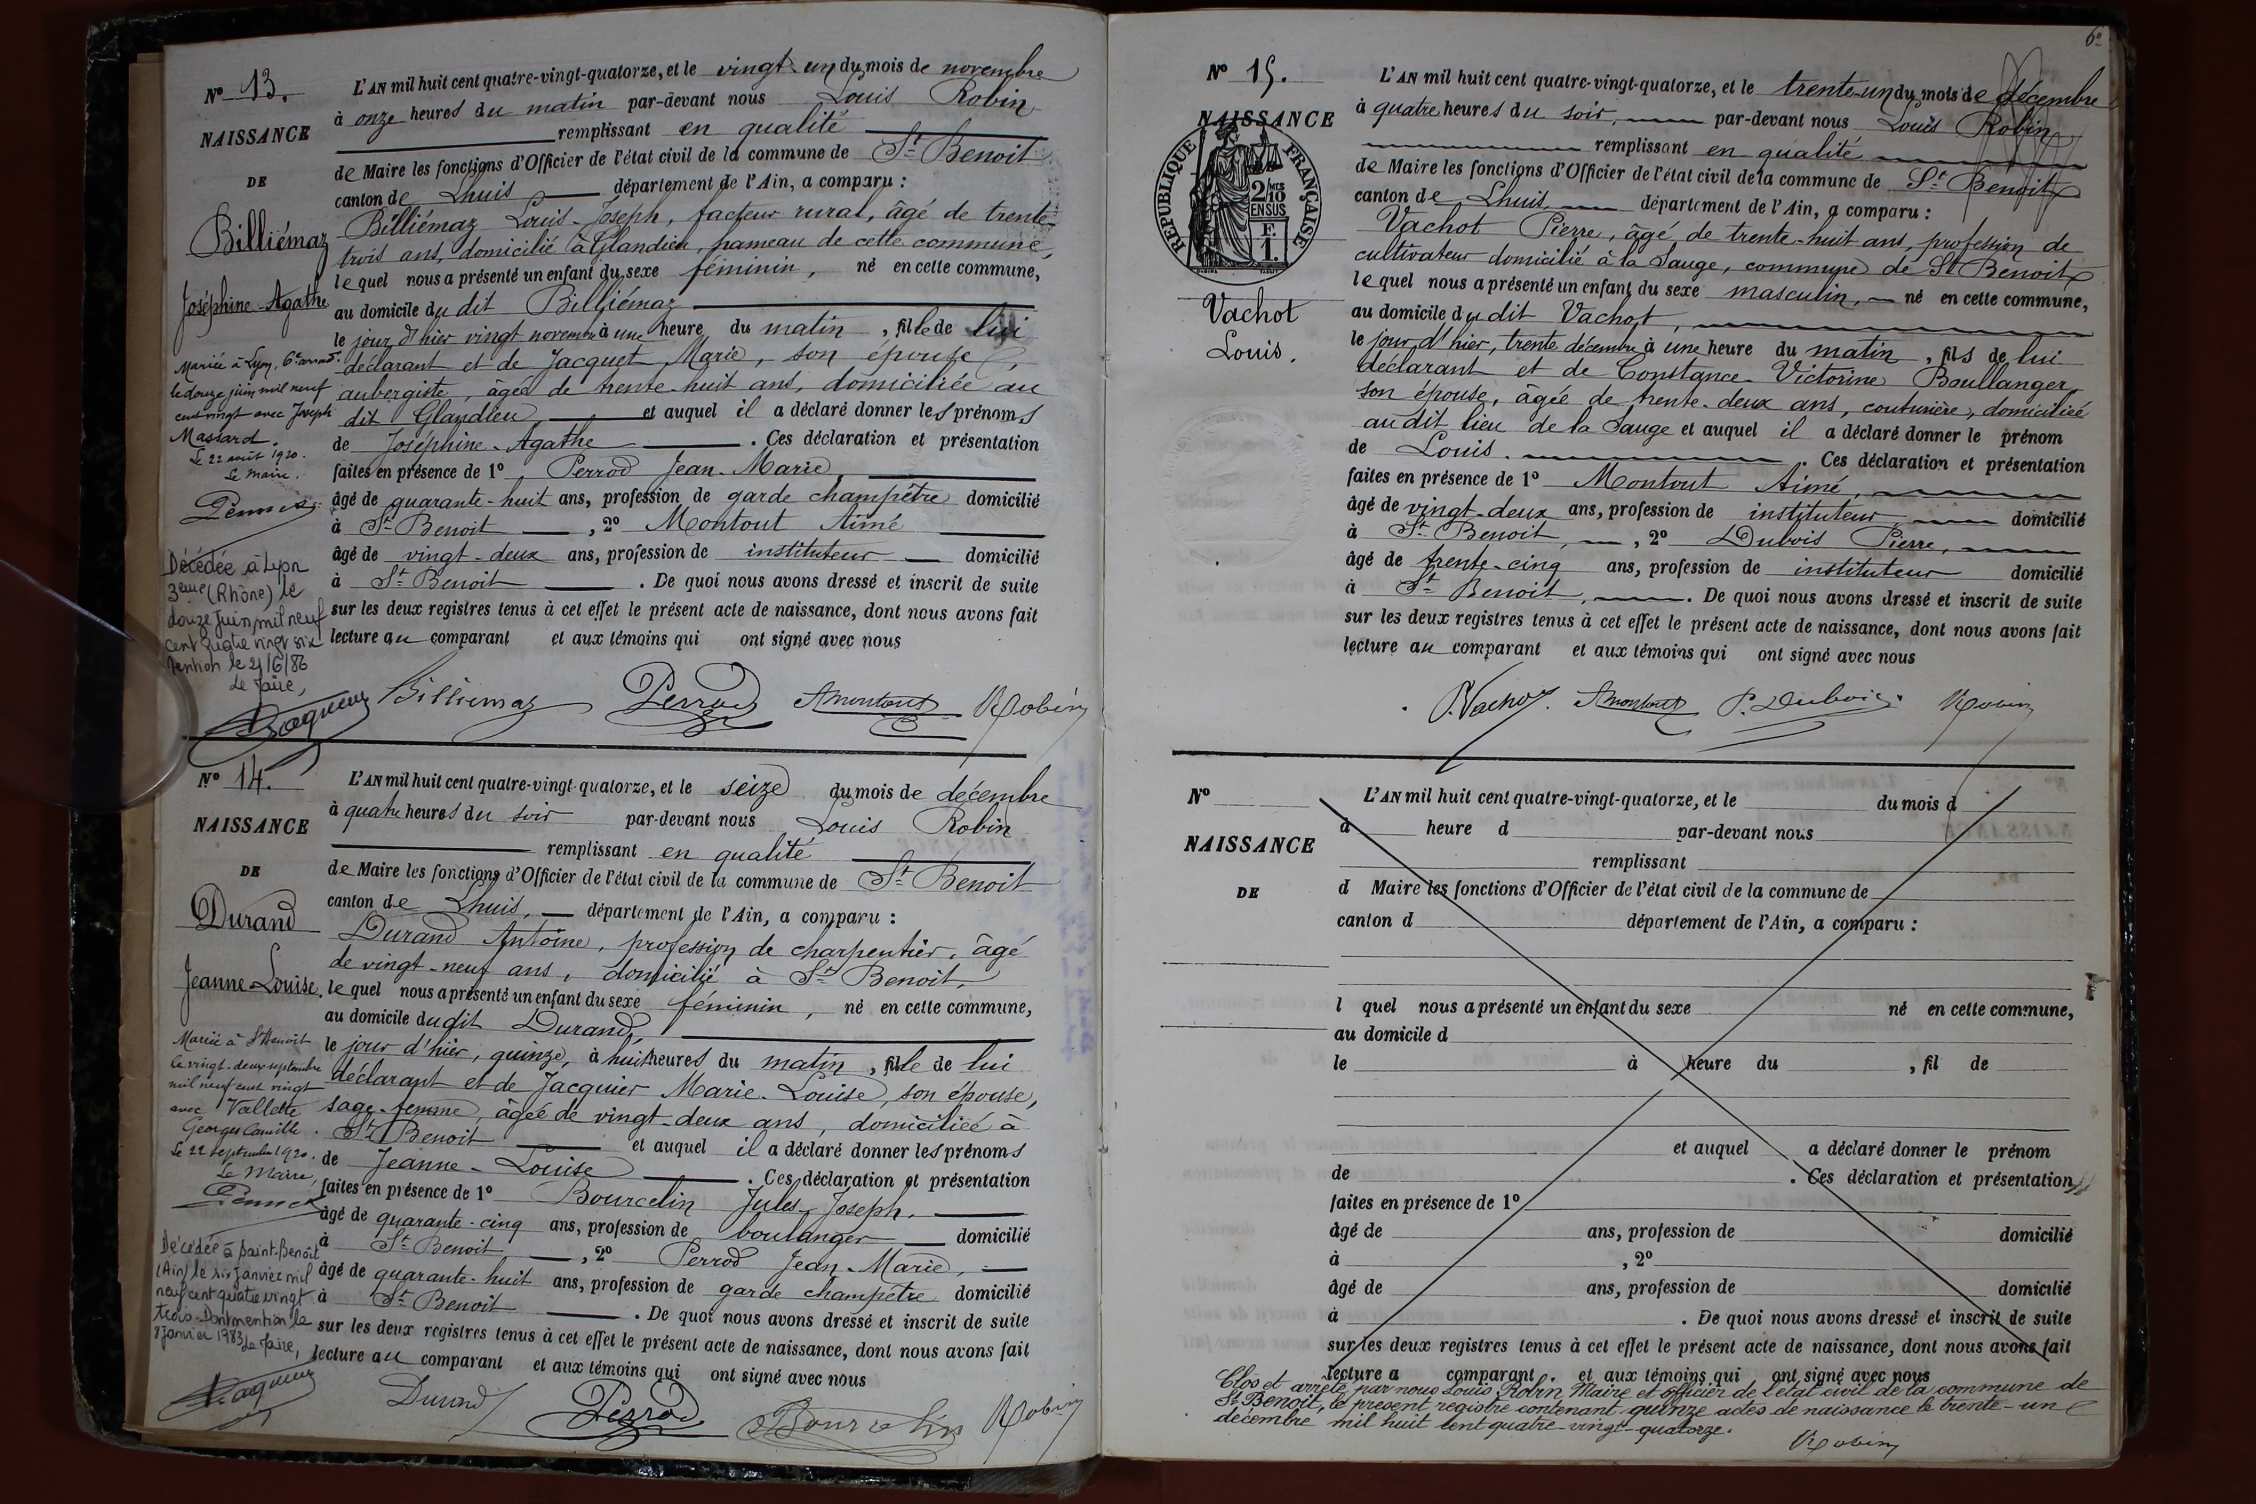 N° 13.
NAISSANCE
DE
Billiémaz
Joséphine-Agathe
Mariée à Lyon, 6e arrondt.
le douze juin mil neuf
cent vingt avec Joseph
Massard.
Le 22 août 1920.
Le Maire.
Décédée à Lyon
3ème (Rhône) le
douze Juin mil neuf
cent quatre vingt six
Mention le 21/6/86
Le Maire,
L'AN mil huit cent quatre-vingt-quatorze, et le vingt-un du mois de novembre
à onze heures du matin par-devant nous Louis Robin
remplissant en qualité
de Maire les fonctions d'Officier de l'état civil de la commune de St Benoit
canton de Lhuis département de l'Ain, a comparu :
Billiémaz Louis-Joseph, facteur rural, âgé de trente-
trois ans, domicilié à Glandieu, hameau de cette commune,
lequel nous a présenté un enfant du sexe féminin, né en cette commune,
au domicile du dit Billiémaz
le jour d'hier vingt novembre à une heure du matin, fille de lui
déclarant et de Jacquet Marie, son épouse,
aubergiste, âgée de trente-huit ans, domiciliée au
dit Glandieu et auquel il a déclaré donner les prénoms
de Joséphine-Agathe . Ces déclaration et présentation
faites en présence de 1° Perrod Jean-Marie
âgé de quarante-huit ans, profession de garde champêtre domicilié
à St Benoit , 2° Montout Aimé
âgé de vingt-deux ans, profession de instituteur domicilié
à St Benoit . De quoi nous avons dressé et inscrit de suite
sur les deux registres tenus à cet effet le présent acte de naissance, dont nous avons fait
lecture au comparant et aux témoins qui ont signé avec nous
Billiemaz Perrod A montout Robin
N° 14.
NAISSANCE
DE
Durand
Jeanne-Louise.
Mariée à St Benoît
le vingt-deux septembre
mil neuf cent vingt
avec Vallette
Georges Camille.
Le 22 septembre 1920.
Le Maire,
Décédée à Saint-Benoît
(Ain) le six Janvier mil
neuf cent quatre vingt
trois. Dont mention le
8 Janvier 1983 Le Maire,
L'AN mil huit cent quatre-vingt-quatorze, et le seize du mois de décembre
à quatre heures du soir par-devant nous Louis Robin
remplissant en qualité
de Maire les fonctions d'Officier de l'état civil de la commune de St Benoit
canton de Lhuis, département de l'Ain, a comparu :
Durand Antoine, profession de charpentier, âgé
de vingt-neuf ans, domicilié à St Benoit,
lequel nous a présenté un enfant du sexe féminin, né en cette commune,
au domicile dudit Durand,
le jour d'hier, quinze, à huit heures du matin, fille de lui
déclarant et de Jacquier Marie-Louise, son épouse,
sage-femme, âgée de vingt-deux ans, domiciliée à
St Benoit et auquel il a déclaré donner les prénoms
de Jeanne-Louise . Ces déclaration et présentation
faites en présence de 1° Bourcelin Jules-Joseph,
âgé de quarante-cinq ans, profession de boulanger domicilié
à St Benoit , 2° Perrod Jean-Marie,
âgé de quarante-huit ans, profession de garde champêtre domicilié
à St Benoit . De quoi nous avons dressé et inscrit de suite
sur les deux registres tenus à cet effet le présent acte de naissance, dont nous avons fait
lecture au comparant et aux témoins qui ont signé avec nous
Durand Perrod Bourcelin Robin
6e
N° 15.
NAISSANCE
RÉPUBLIQUE FRANÇAISE
2/10 MES
EN SUS
F.
1.
Vachot
Louis.
L'AN mil huit cent quatre-vingt-quatorze, et le trente-un du mois de décembre
à quatre heures du soir, par-devant nous Louis Robin
remplissant en qualité
de Maire les fonctions d'Officier de l'état civil de la commune de St Benoit
canton de Lhuis, département de l'Ain, a comparu :
Vachot Pierre, âgé de trente-huit ans, profession de
cultivateur domicilié à la Sauge, commune de St Benoit
lequel nous a présenté un enfant du sexe masculin, né en cette commune,
au domicile dudit Vachot,
le jour d'hier, trente décembre à une heure du matin, fils de lui
déclarant et de Constance-Victorine Boullanger,
son épouse, âgée de trente-deux ans, couturière, domiciliée
au dit lieu de la Sauge et auquel il a déclaré donner le prénom
de Louis. . Ces déclaration et présentation
faites en présence de 1° Montout Aimé,
âgé de vingt-deux ans, profession de instituteur domicilié
à St Benoit, , 2° Dubois Pierre,
âgé de trente-cinq ans, profession de instituteur domicilié
à St Benoit, . De quoi nous avons dressé et inscrit de suite
sur les deux registres tenus à cet effet le présent acte de naissance, dont nous avons fait
lecture au comparant et aux témoins qui ont signé avec nous
P. Vachot. A montout P. Dubois Robin
N°
NAISSANCE
DE
L'AN mil huit cent quatre-vingt-quatorze, et le du mois d
à heure d par-devant nous
remplissant
d Maire les fonctions d'Officier de l'état civil de la commune de
canton d département de l'Ain, a comparu :
l quel nous a présenté un enfant du sexe né en cette commune,
au domicile d
le à heure du , fil de
et auquel a déclaré donner le prénom
de . Ces déclaration et présentation
faites en présence de 1°
âgé de ans, profession de domicilié
à , 2°
âgé de ans, profession de domicilié
à . De quoi nous avons dressé et inscrit de suite
sur les deux registres tenus à cet effet le présent acte de naissance, dont nous avons fait
lecture a comparant . et aux témoins qui ont signé avec nous
Clos et arrêté par nous Louis Robin Maire et officier de l'état civil de la commune de
St Benoit, le présent registre contenant quinze actes de naissance le trente-un
décembre mil huit cent quatre-vingt-quatorze.
Robin